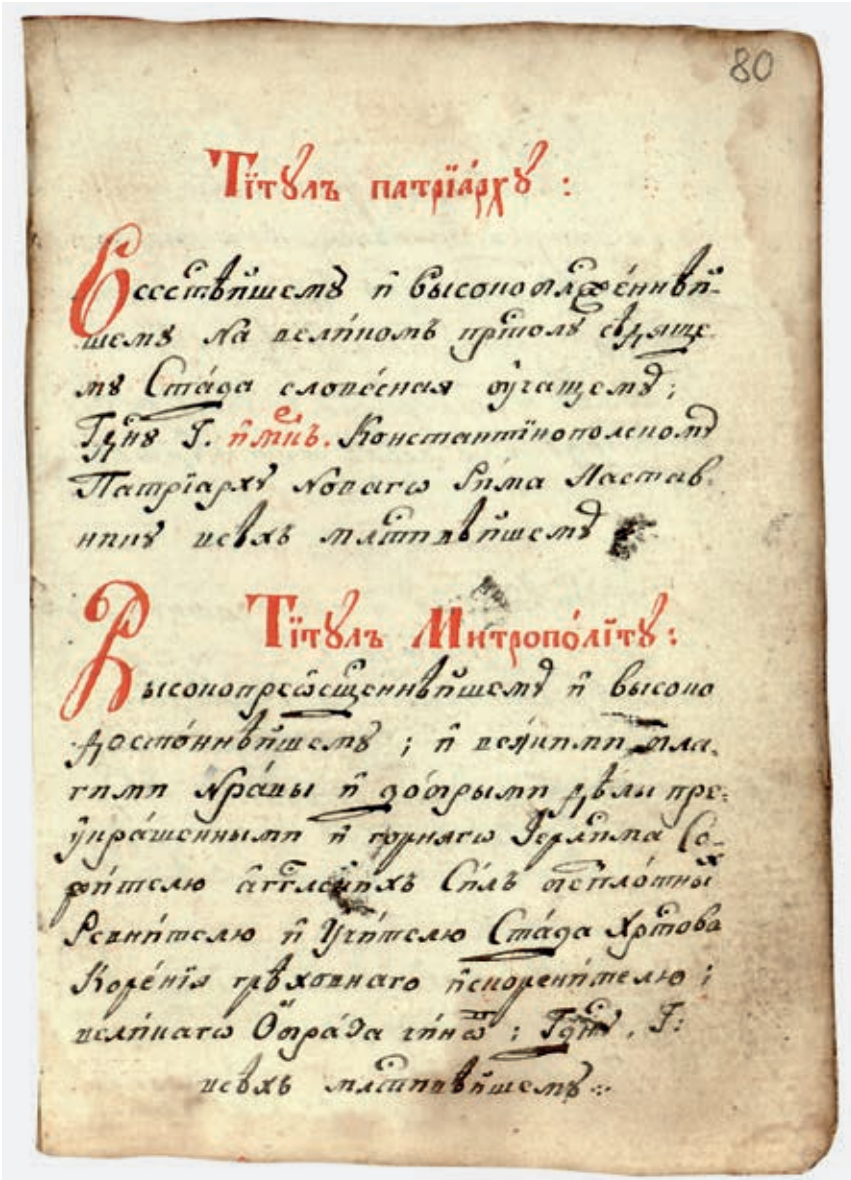 80
Тїтꙋлъ патрїа́рхꙋ :
Всест҃ѣйшемꙋ и҆ Высокоблаже́ннѣй-
шемꙋ на вели́комъ прⷭ҇толѣ сѣдѧще
мꙋ Ста́да слове́снаѧ ѹ҆чащемꙋ ;
Гдⷭ҇нꙋ Г. и҆мⷬ҇къ. Константїнополскомꙋ
Патрїархꙋ Новагѡ Ри́ма Настав
никꙋ всѣхъ млⷭ҇тивѣйшемꙋ
Тїтꙋлъ Митропо́лїтꙋ :
Высокопреѡ҆сщ҃еннѣйшемꙋ и҆ высоко
досто́йнѣйшемꙋ ; и҆ всѧ́кими бла
гими Нра́вы и҆ добрыми дѣлы пре
ѹкра́шенными и҆ горнѧгѡ Іерⷭ҇лима Со
жи́телю а҆гг҃лскихъ Си́лъ безпло́тныⷯ
Ревни́телю и҆ Ѹчи́телю Ста́да Хрⷭ҇това
Коре́нїѧ грѣховнаго и҆скорени́телю ;
вели́кагѡ Ѡбра́да чи́нѡ ; Гдⷭ҇нꙋ , Г :
всѣхъ млⷭ҇тивѣйшемꙋ :·